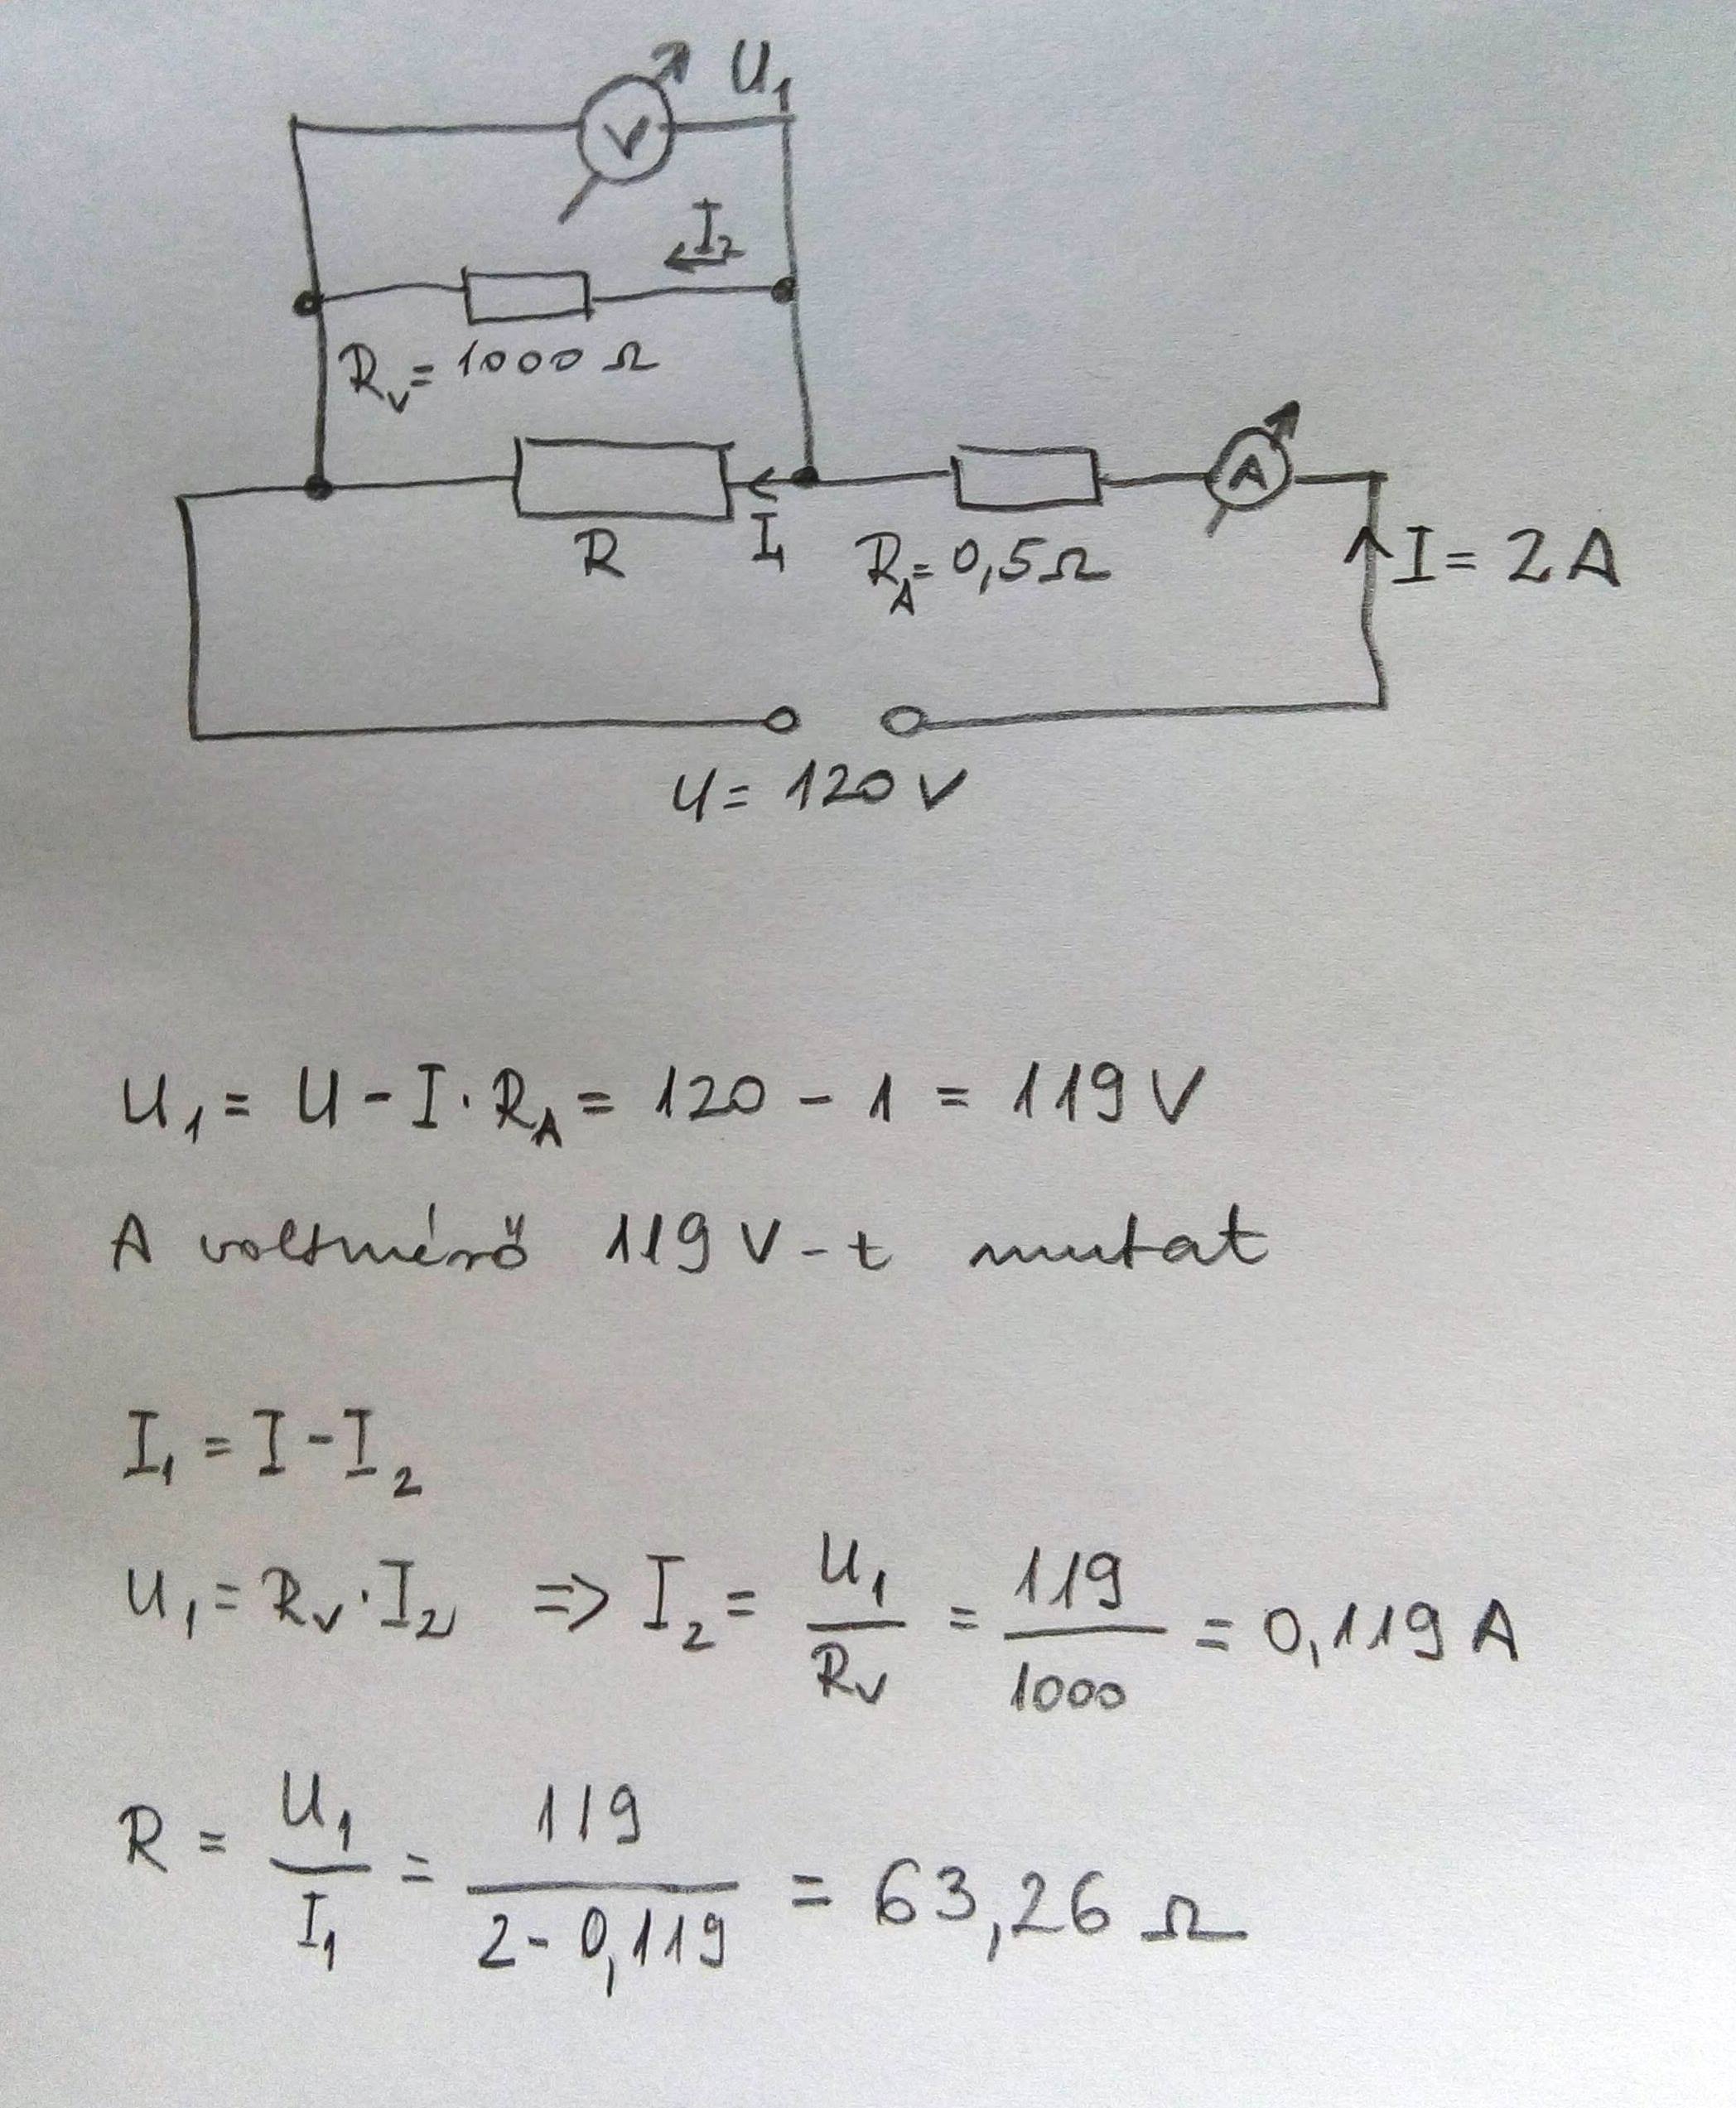 U₁
V
I₂
R_V = 1000 Ω
A
R
I₁
R_A = 0,5 Ω
I = 2 A
U = 120 V
U₁ = U - I · R_A = 120 - 1 = 119 V
A voltmérő 119 V-t mutat
I₁ = I - I₂
U₁ = R_V · I₂ => I₂ = U₁ / R_V = 119 / 1000 = 0,119 A
R = U₁ / I₁ = 119 / (2 - 0,119) = 63,26 Ω